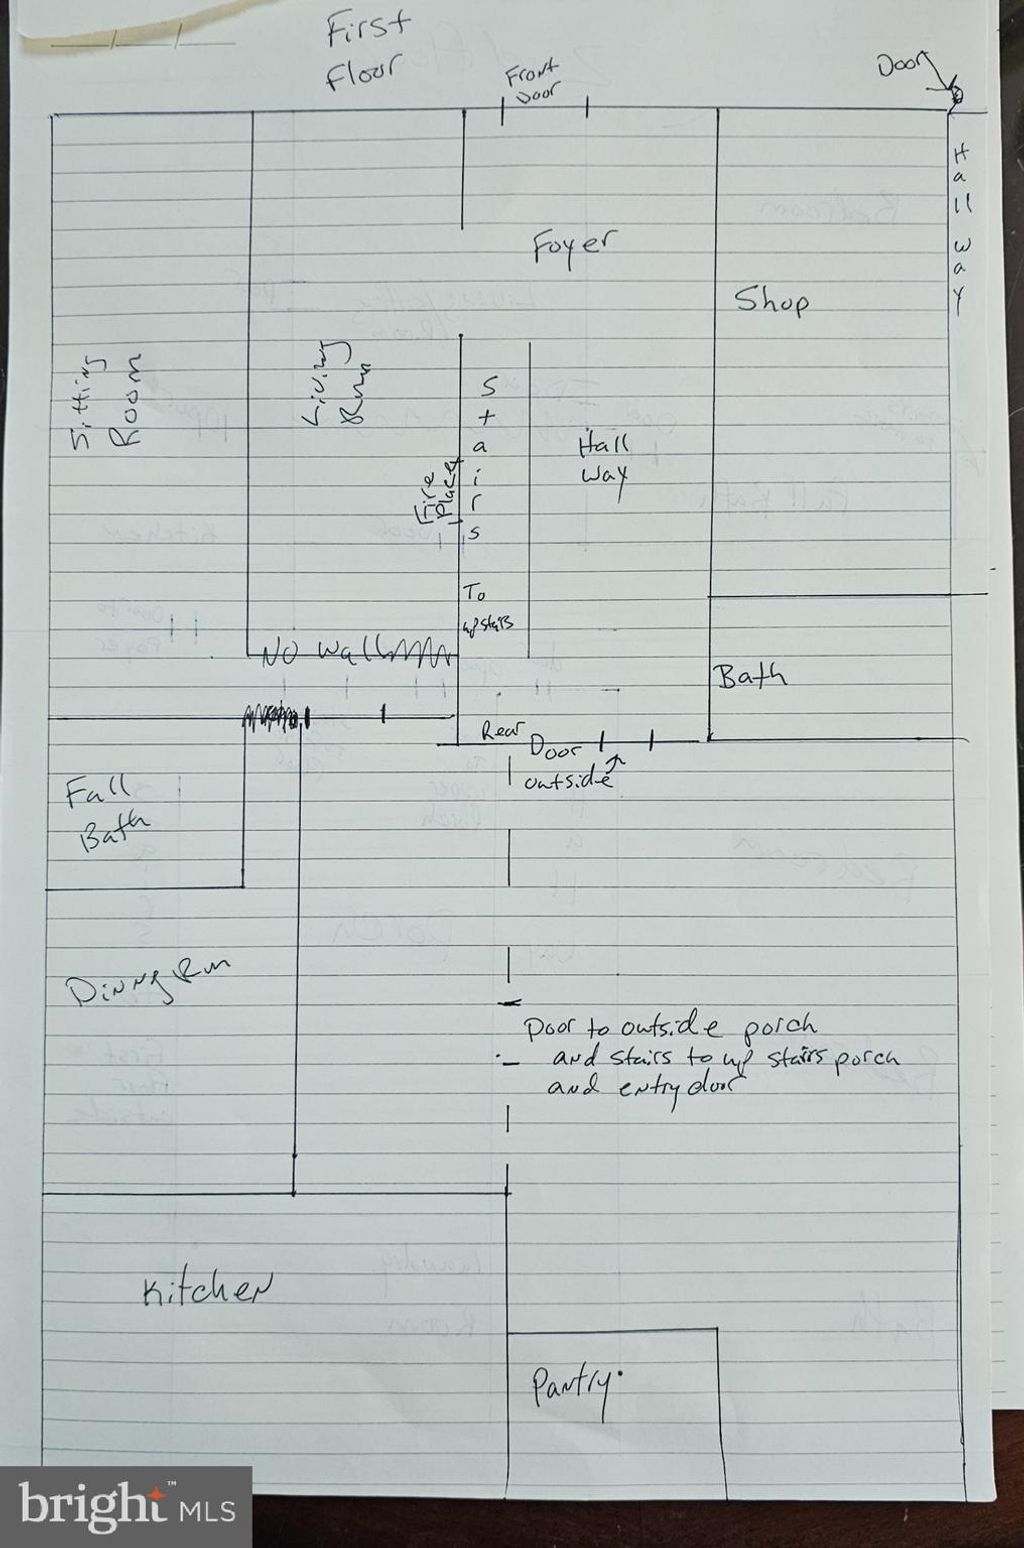 First
Floor
Front
Door
Door
Hall way
Foyer
Shop
Sitting
Room
Living
Rum
Stairs
To
upstairs
Fire
Place
Hall
way
No wall
Bath
Rear
Door
outside
Full
Bath
Dining Rm
Door to outside porch
and stairs to up stairs porch
and entry door
Kitchen
Pantry
bright™ MLS